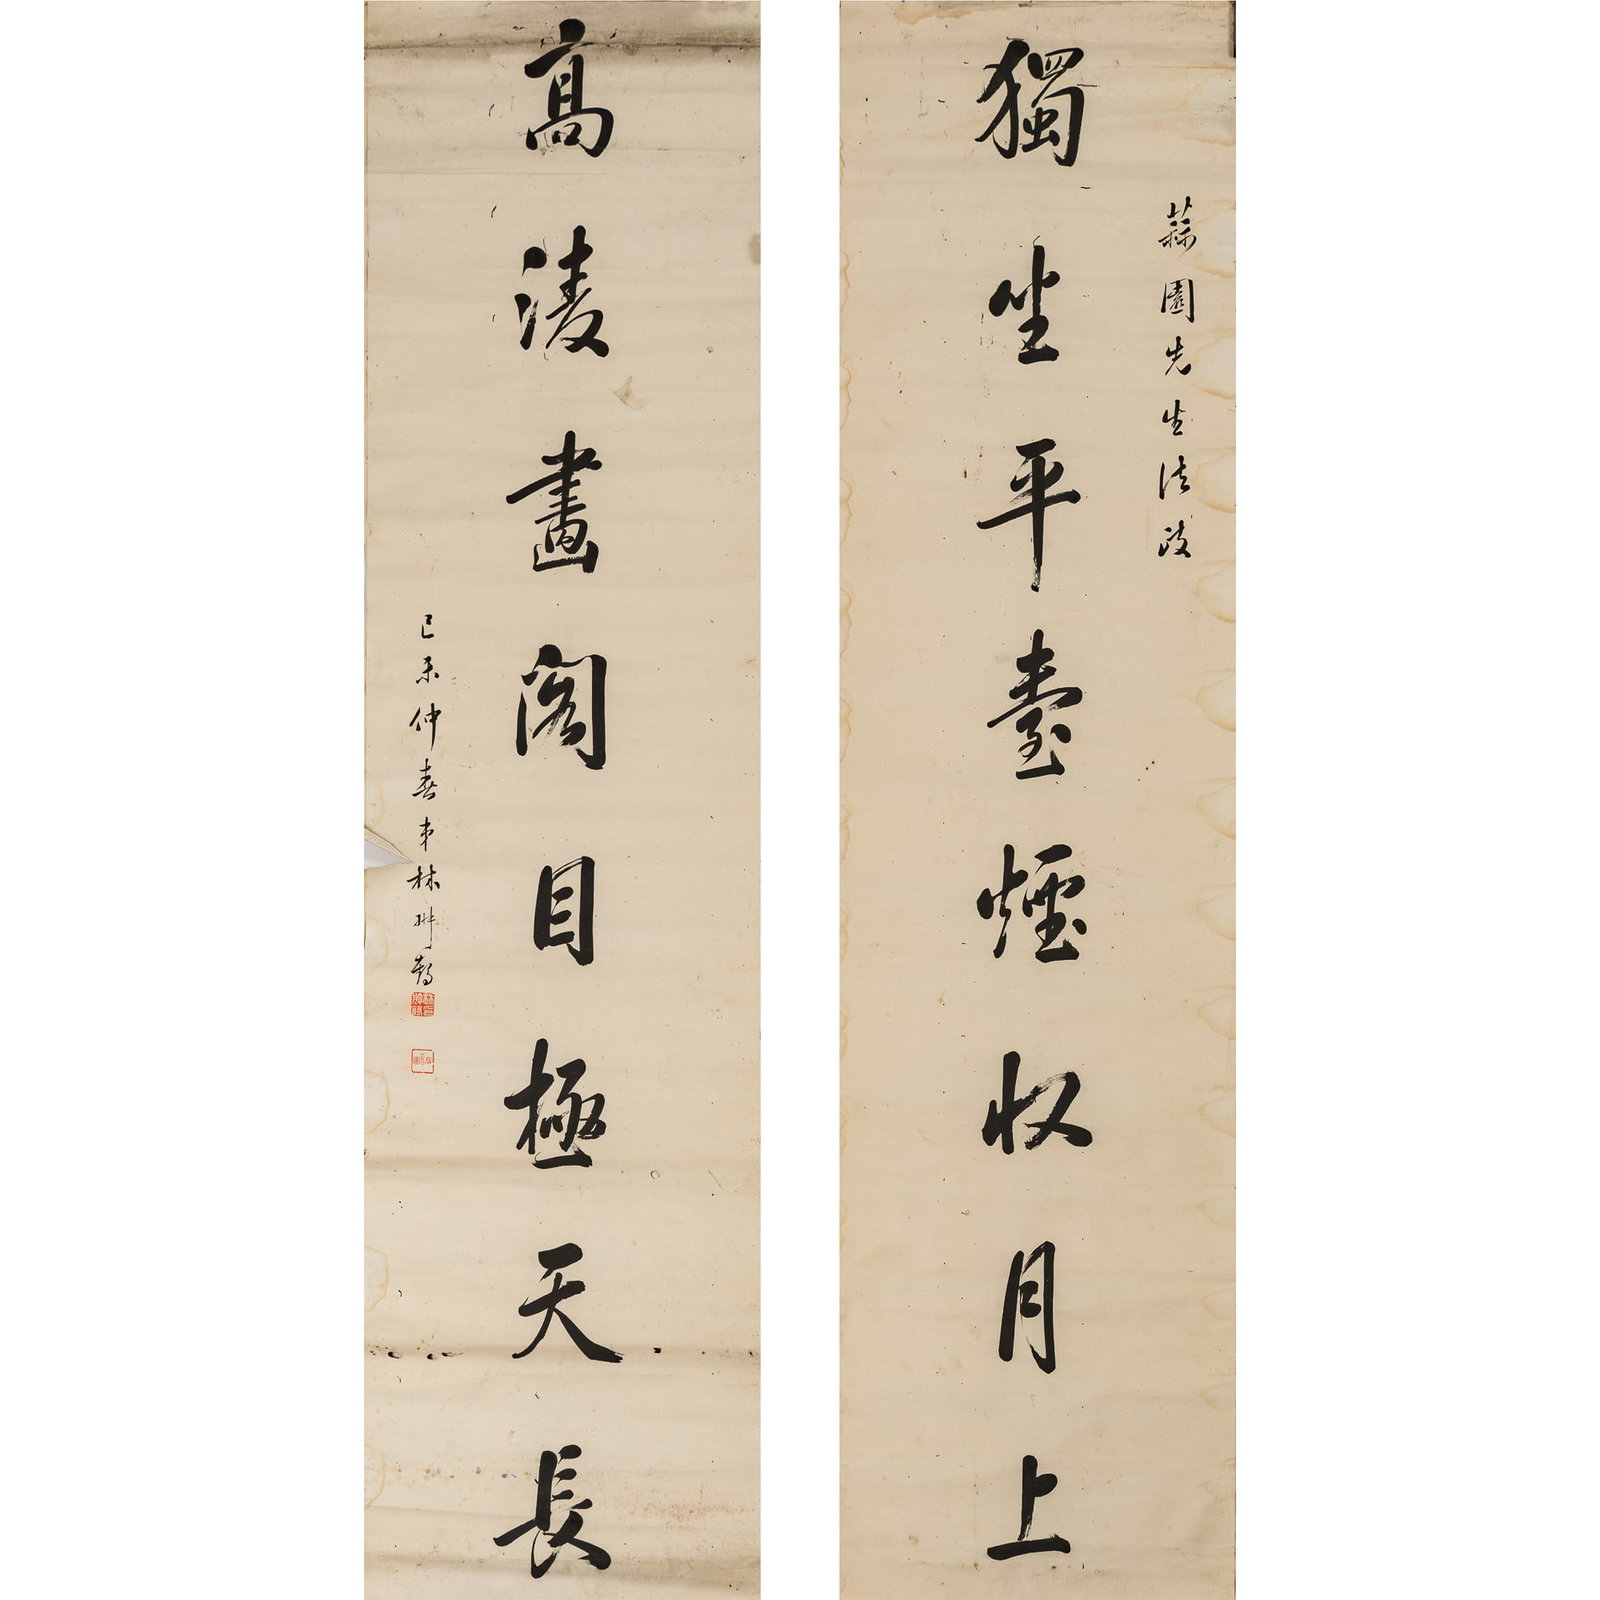 園先生法政
獨坐平臺煙收月上
高淩畫閣目極天長
己未仲春弟林翀鶴